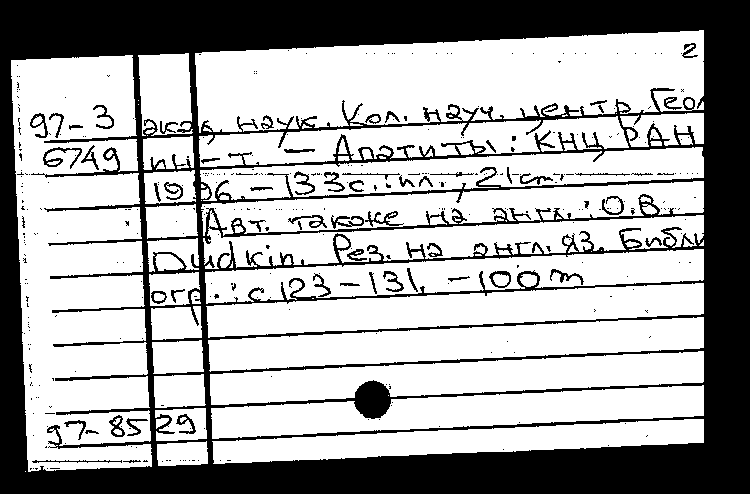 2
97-3 акад. наук. Кол. науч. центр, Геол
6749 ин-т. - Апатиты : КНЦ РАН,
1996. - 133 с. : ил. ; 21 cm.
Авт. также на англ. : O.B.
Dudkin. Рез. на англ. яз. Библи
огр. : с. 123-131. - 100 m
97-8529